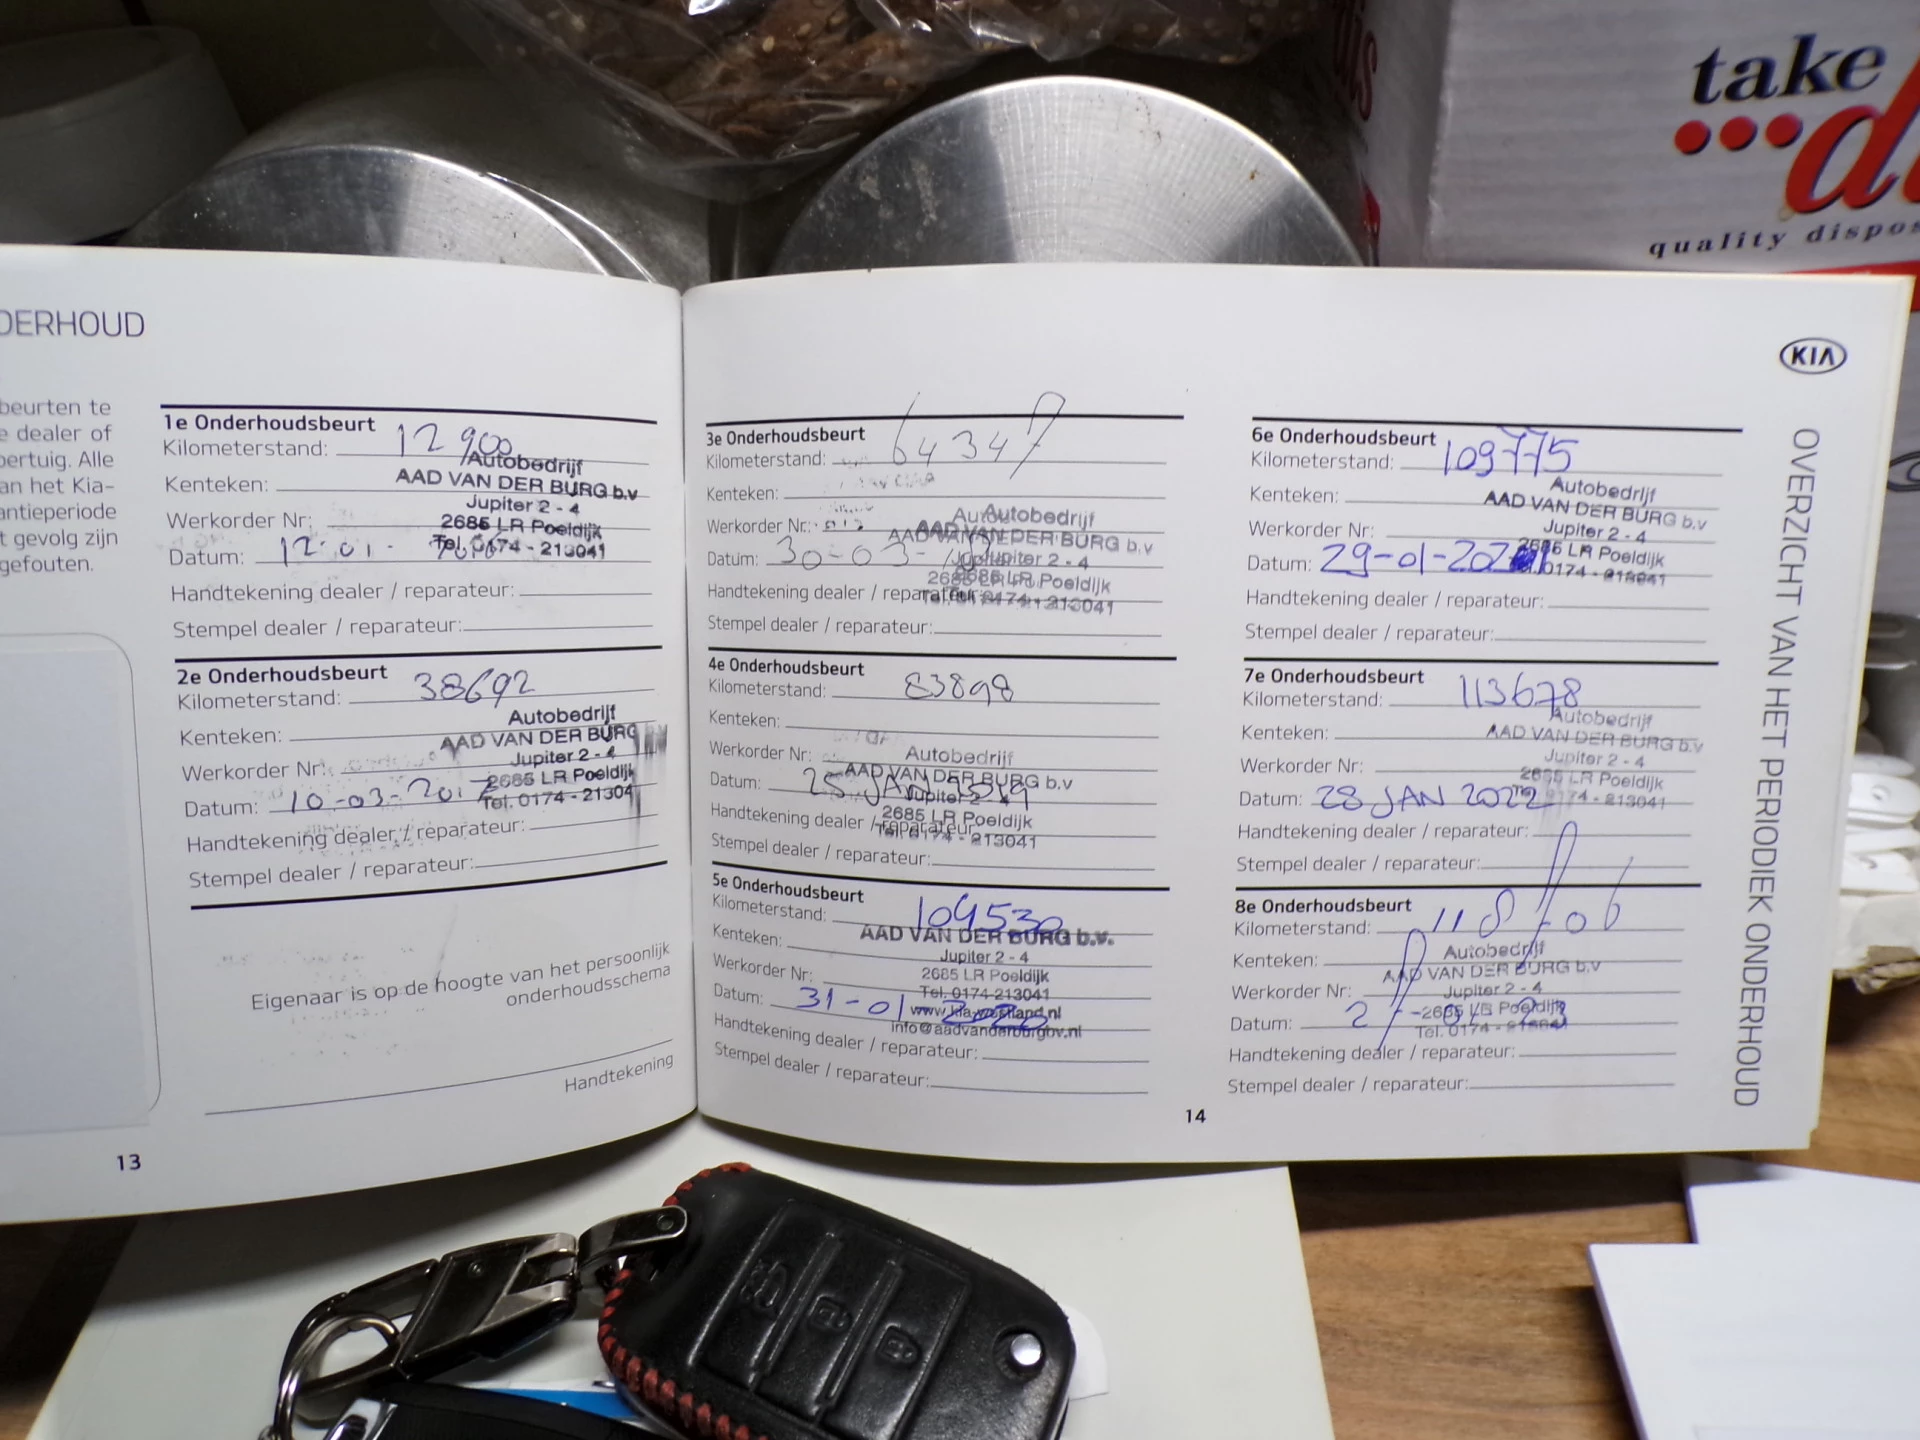 take
d
quality dispos
DERHOUD
beurten te
e dealer of
pertuig. Alle
an het Kia-
antieperiode
t gevolg zijn
gefouten.
1e Onderhoudsbeurt
Kilometerstand: 12900
Autobedrijf
Kenteken: AAD VAN DER BURG b.v
Jupiter 2 - 4
Werkorder Nr: 2685 LR Poeldijk
Datum: 12-01- Tel. 0174 - 213041
Handtekening dealer / reparateur:
Stempel dealer / reparateur:
2e Onderhoudsbeurt
Kilometerstand: 38692
Autobedrijf
Kenteken: AAD VAN DER BURG
Jupiter 2 - 4
Werkorder Nr: 2685 LR Poeldijk
Datum: 10-03-2017 Tel. 0174 - 21304
Handtekening dealer / reparateur:
Stempel dealer / reparateur:
Eigenaar is op de hoogte van het persoonlijk
onderhoudsschema
Handtekening
13
3e Onderhoudsbeurt
Kilometerstand: 64347
Kenteken:
Autobedrijf
Werkorder Nr: AAD VAN DER BURG b.v
Datum: 30-03- Jupiter 2 - 4
2685 LR Poeldijk
Handtekening dealer / reparateur: Tel. 0174 - 213041
Stempel dealer / reparateur:
4e Onderhoudsbeurt
Kilometerstand: 83898
Kenteken:
Werkorder Nr: Autobedrijf
AAD VAN DER BURG b.v
Datum: 25 JAN Jupiter 2 - 4
2685 LR Poeldijk
Handtekening dealer / reparateur: Tel. 0174 - 213041
Stempel dealer / reparateur:
5e Onderhoudsbeurt
Kilometerstand: 109530
Kenteken: AAD VAN DER BURG b.v.
Jupiter 2 - 4
Werkorder Nr: 2685 LR Poeldijk
Tel. 0174-213041
Datum: 31-01-2020 www.kia-westland.nl
info@aadvanderburgbv.nl
Handtekening dealer / reparateur:
Stempel dealer / reparateur:
14
KIA
6e Onderhoudsbeurt
Kilometerstand: 109775
Autobedrijf
Kenteken: AAD VAN DER BURG b.v
Jupiter 2 - 4
Werkorder Nr: 2685 LR Poeldijk
Datum: 29-01-2021 Tel. 0174 - 213041
Handtekening dealer / reparateur:
Stempel dealer / reparateur:
7e Onderhoudsbeurt
Kilometerstand: 113678
Autobedrijf
Kenteken: AAD VAN DER BURG b.v
Jupiter 2 - 4
Werkorder Nr: 2685 LR Poeldijk
Datum: 28 JAN 2022 Tel. 0174 - 213041
Handtekening dealer / reparateur:
Stempel dealer / reparateur:
8e Onderhoudsbeurt
Kilometerstand:
Autobedrijf
Kenteken: AAD VAN DER BURG b.v
Jupiter 2 - 4
Werkorder Nr: 2685 LR Poeldijk
Datum: Tel. 0174 - 213041
Handtekening dealer / reparateur:
Stempel dealer / reparateur:
OVERZICHT VAN HET PERIODIEK ONDERHOUD